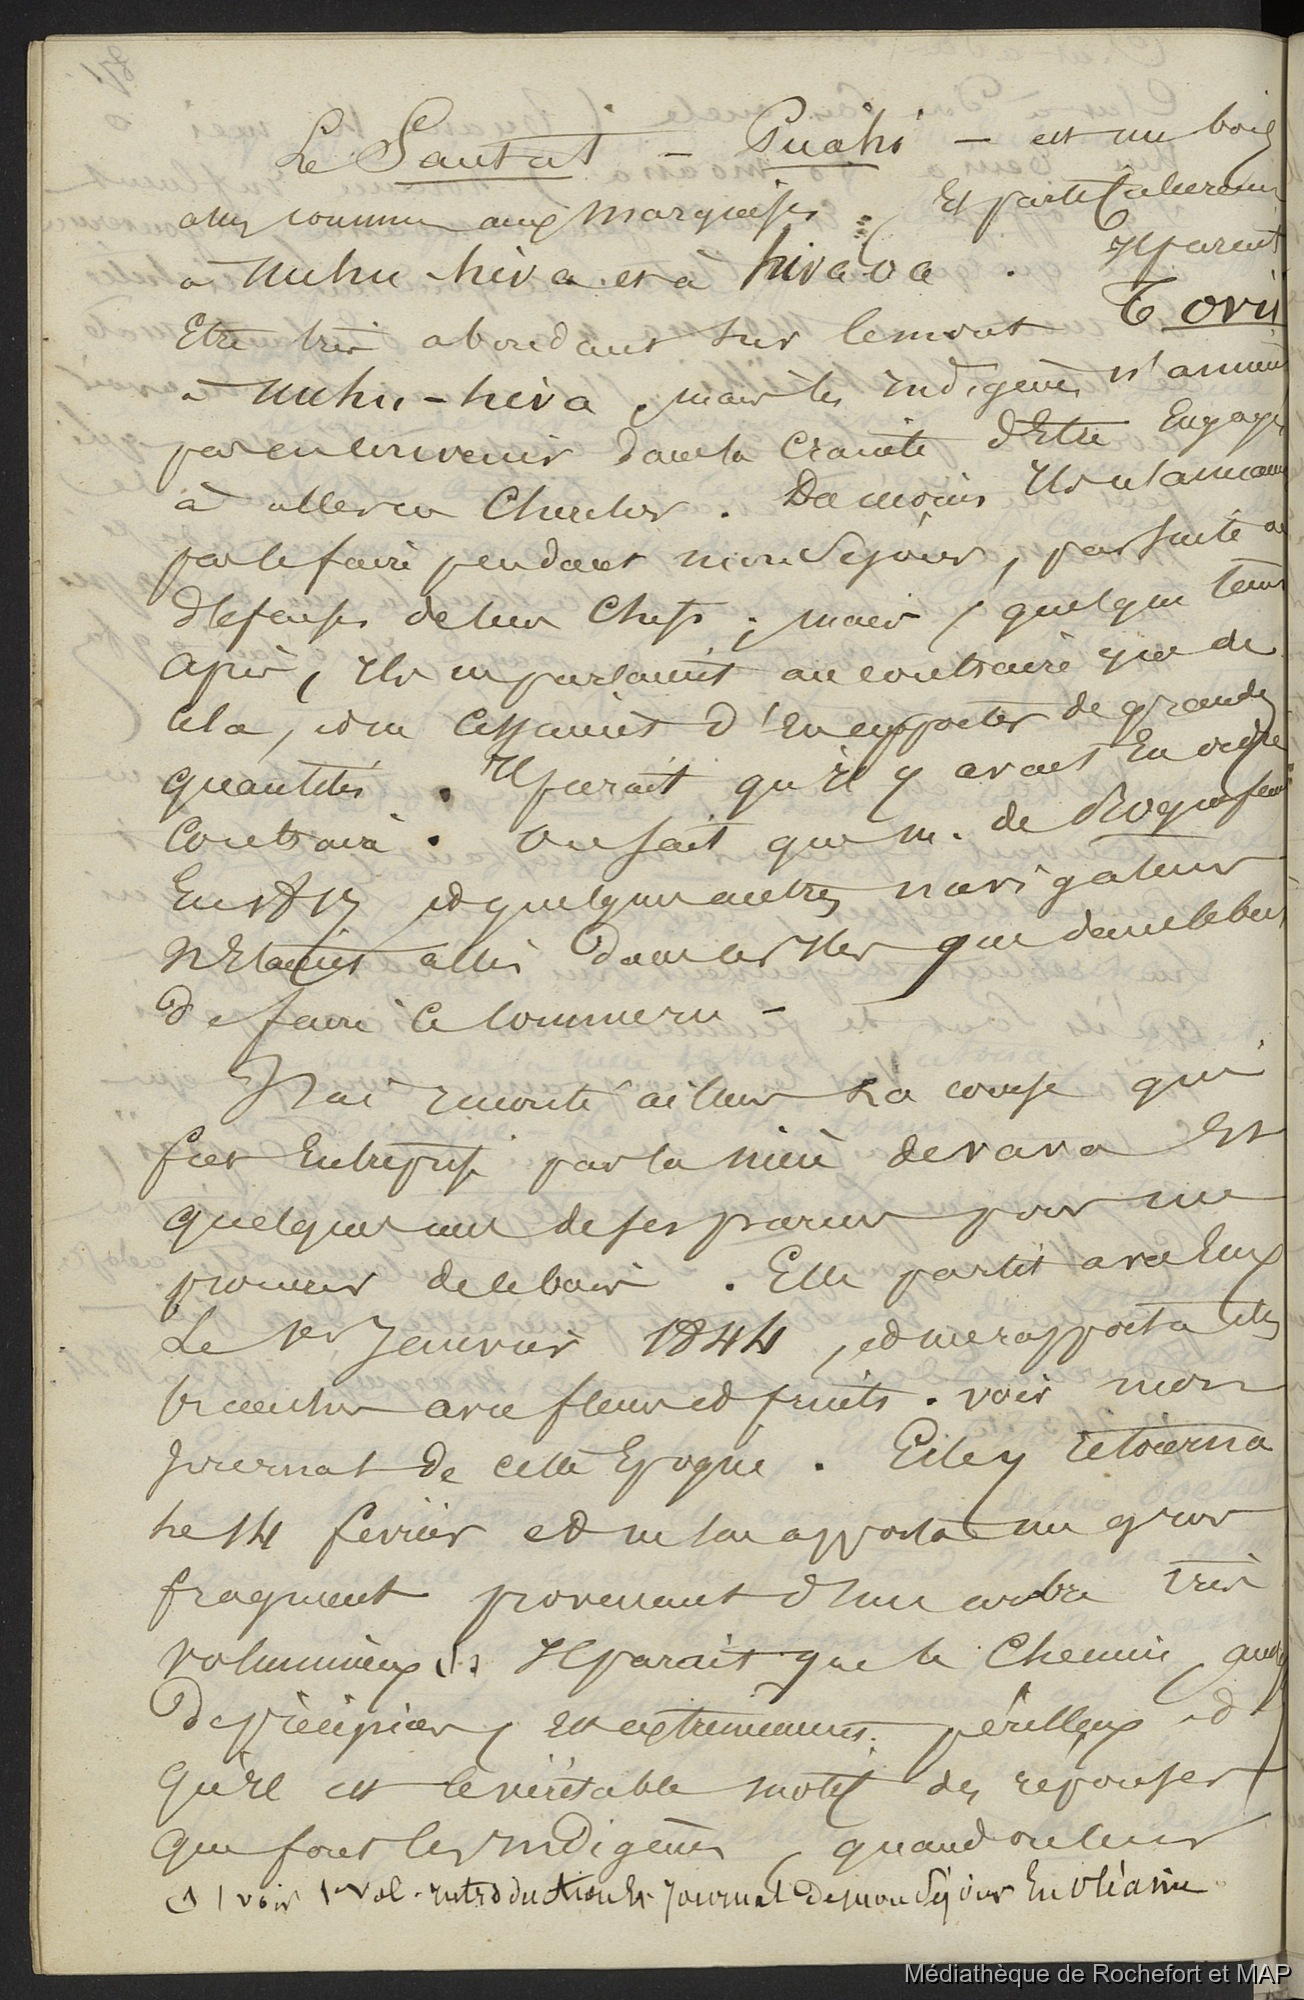 Le Santal - Puahi - est un bois
assez commun aux Marquises. Et particulièrement
à Nuhu-hiva et à hivaoa. Il parait
Etre très abondant sur le mont Tovii
à Nuhu-hiva, mais les indigènes n'aiment
pas en convenir dans la crainte d'Etre Engagés
à aller en chercher. Du moins Ils n'ont
pas le faire pendant mon Séjour, par suite de
défenses de leur chefs; mais, quelque tems
après, Ils me parlaient au contraire que de
cela, et ne cessaient d'En apporter de grandes
quantités. Il parait qu'il y avait En ordre
Contraire. On sait que M. de Roquefeuil
En 1817 et quelques autres navigateurs
N'Etaient allés dans les Iles que dans le but
de faire ce commerce -
J'ai raconté ailleurs la course qui
fut Entreprise par la mère de vava Et
quelques uns de ses parens pour me
procurer de ce bois. Elle partit avec Eux
Le 1er Janvier 1844, et me rapporta des
branches avec fleurs et fruits. voir mon
Journal de cette Epoque. Elle y retourna
Le 14 février et me rapporta un gros
fragment provenant d'un arbre très
volumineux (1). Il parait que le chemin,
de précipices, est extrêmement périlleux et
qu'Il est le véritable motif des réponses
que font les Indigènes, quand on leur
(1) voir 1er vol. introduction Et Journal de mon Séjour En Océanie
Médiathèque de Rochefort et MAP